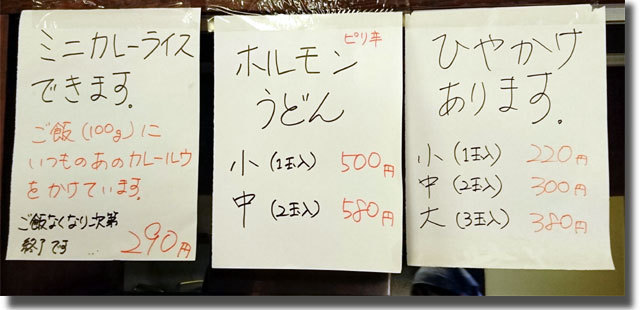 ミニカレーライス
できます。
ご飯(100g)に
いつものあのカレールウ
をかけています。
ご飯なくなり次第
終了です 290円
ピリ辛
ホルモン
うどん
小(1玉入) 500円
中(2玉入) 580円
ひやかけ
あります。
小(1玉入) 220円
中(2玉入) 300円
大(3玉入) 380円